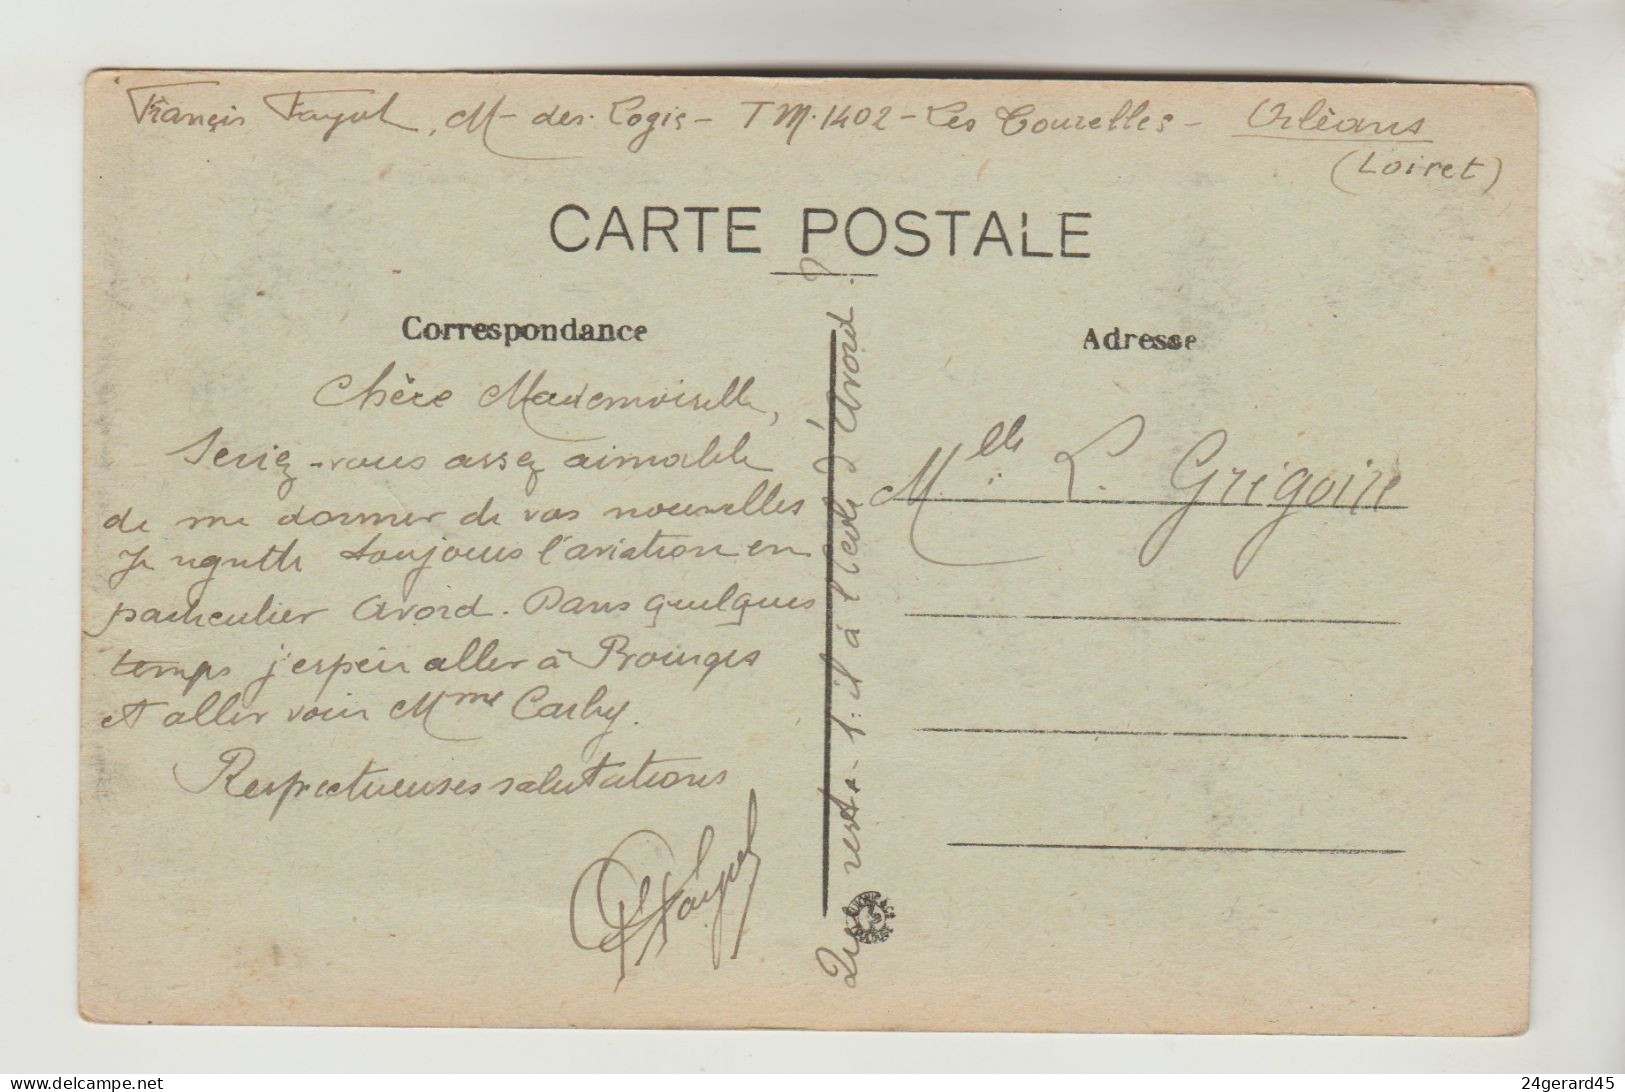 Francis Fayol, M- des. Logis - T M. 1402 - Les Tourelles - Orléans
(Loiret)
CARTE POSTALE
Correspondance
Adresse
Chère Mademoiselle,
Seriez-vous assez aimable
de me donner de vos nouvelles
Je regrette toujours l'aviation en
particulier Avord. Dans quelques
temps j'espère aller à Bourges
et aller voir Mme Carby.
Respectueuses salutations
FFayol
Que reste-t-il à l'école d'Avord ?
Mlle L. Grégoire
24gerard45